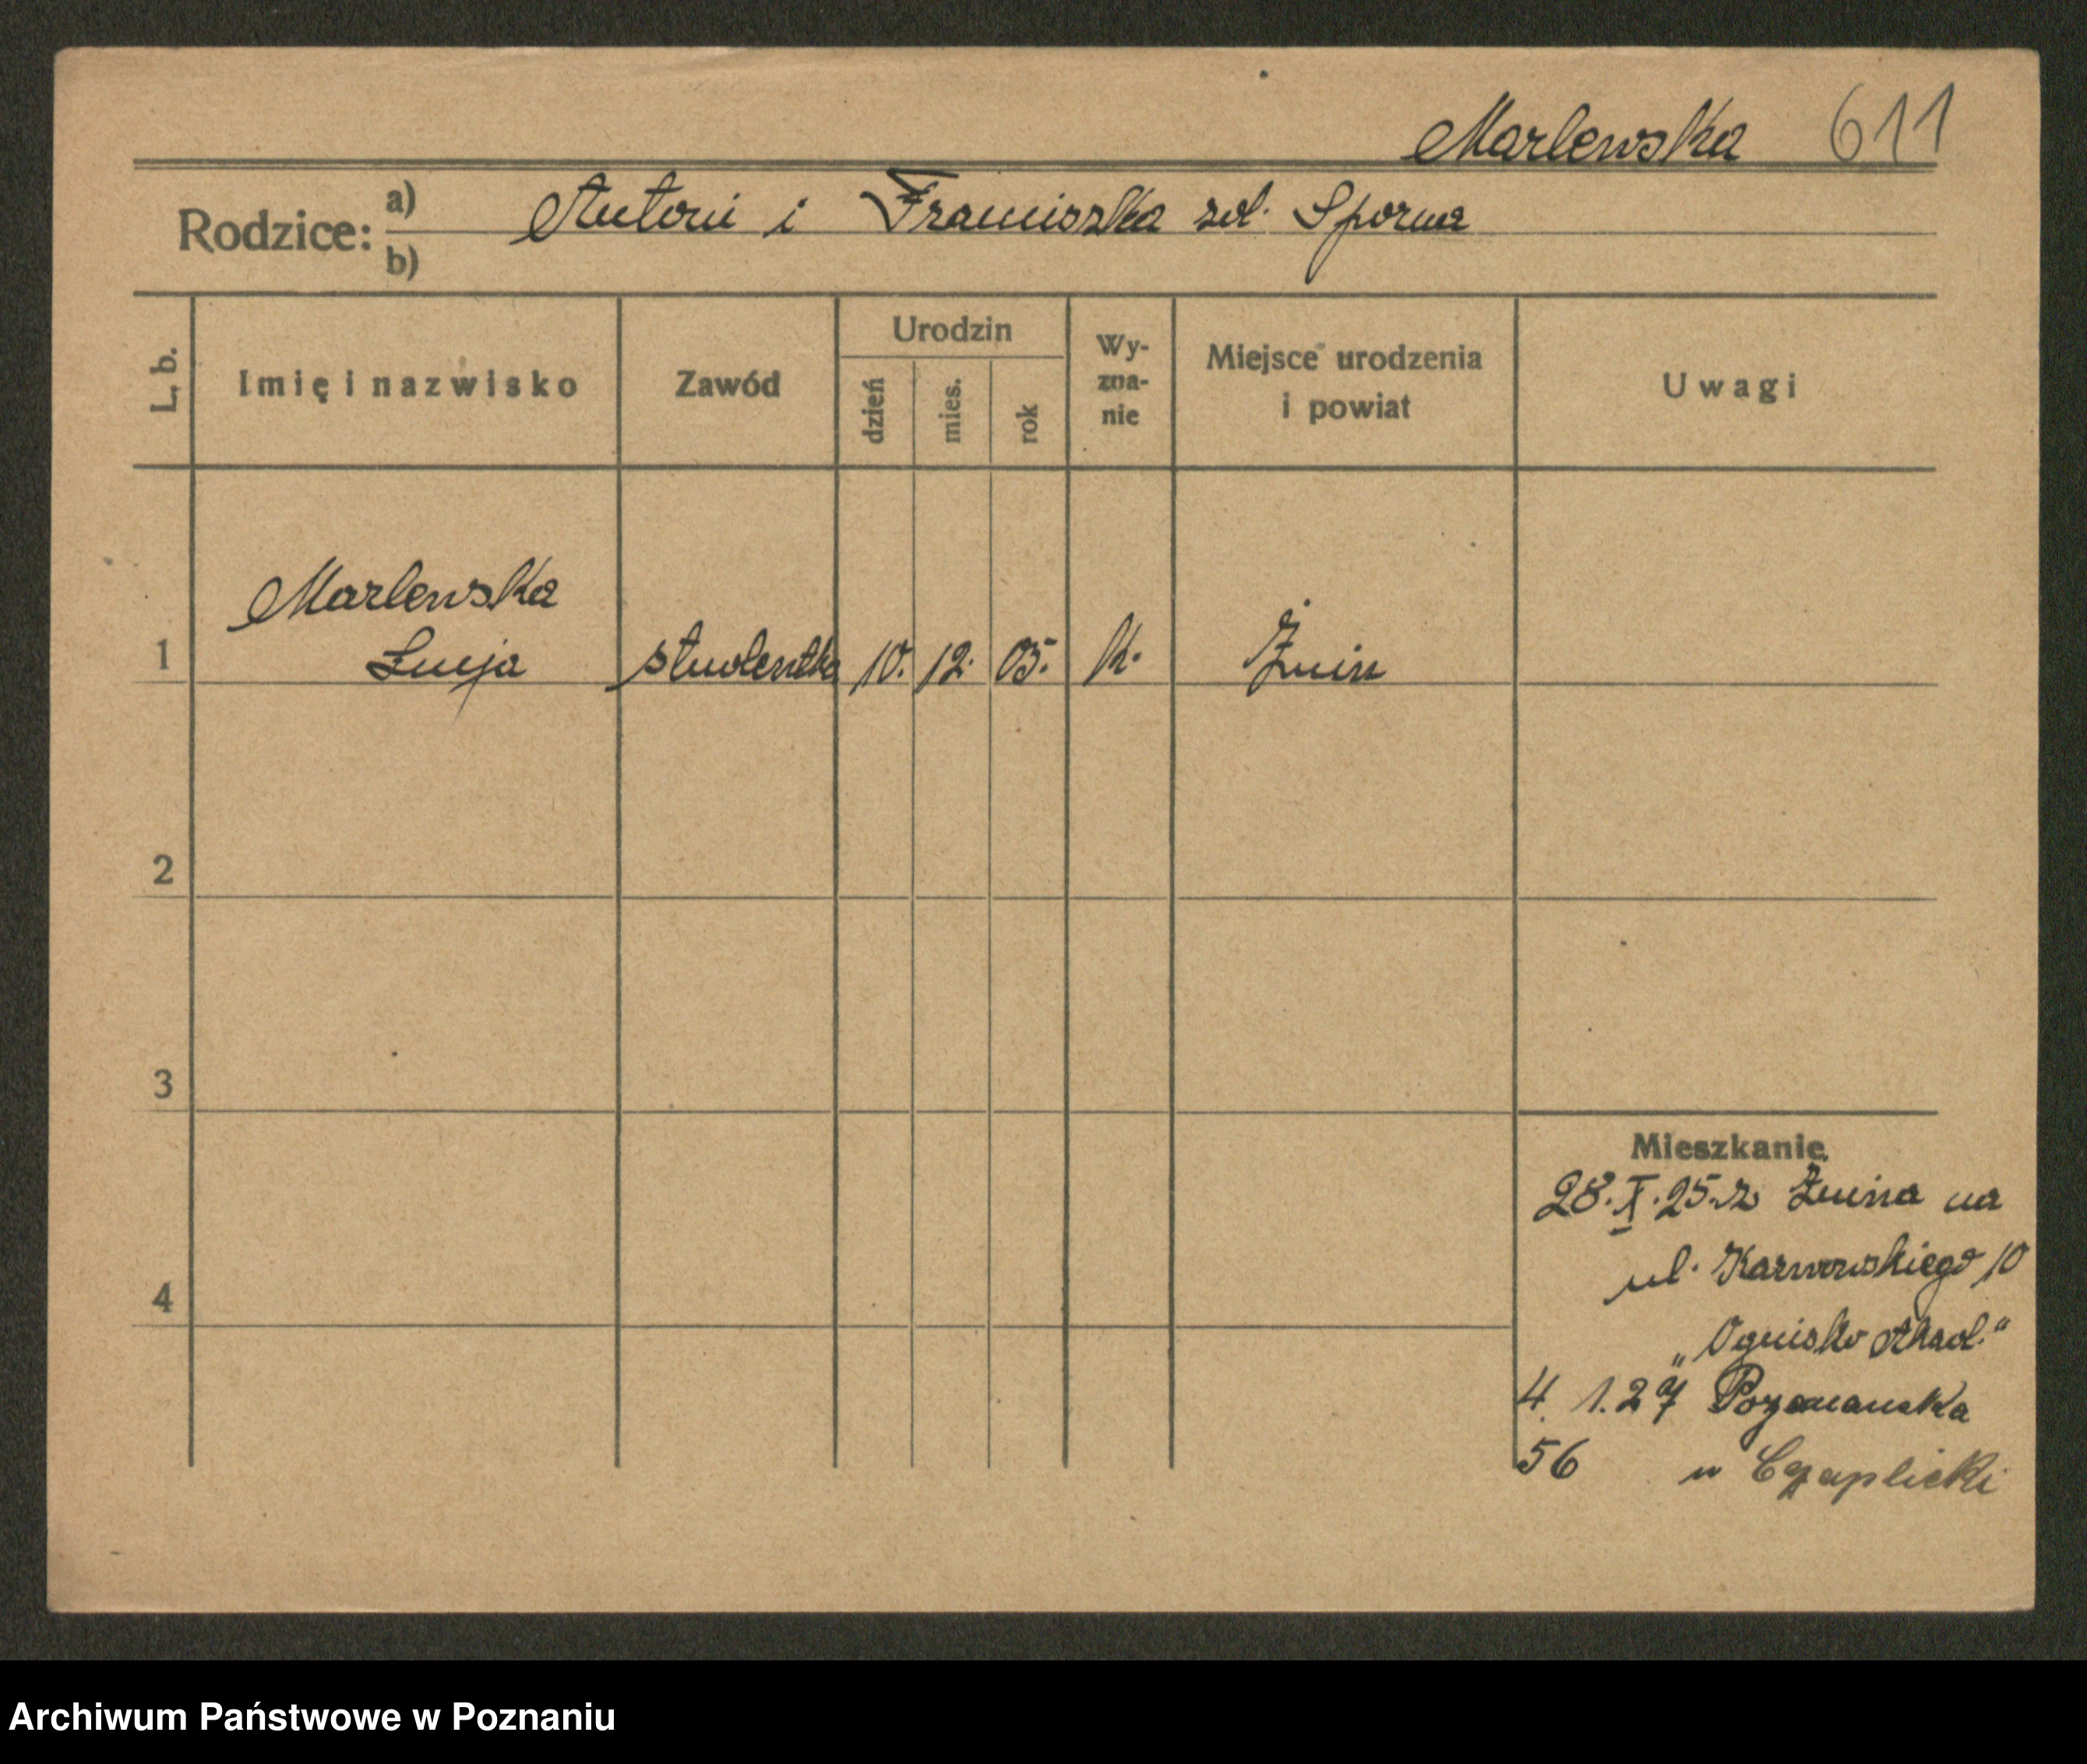 Marlewska 611
Rodzice: a) Antoni i Franciszka zd. Sporna
b)
L. b.
Imię i nazwisko
Zawód
Urodzin
dzień
mies.
rok
Wy-
zna-
nie
Miejsce urodzenia
i powiat
Uwagi
Marlewska
1 Łucja studentka 10. 12. 05. k. Żnin
2
3
4
Mieszkanie
28.X.25. z Żnina na
ul. Karwowskiego 10
„Ognisko Akad."
4. 1.27 Poznańska
56 u Czaplicki
Archiwum Państwowe w Poznaniu